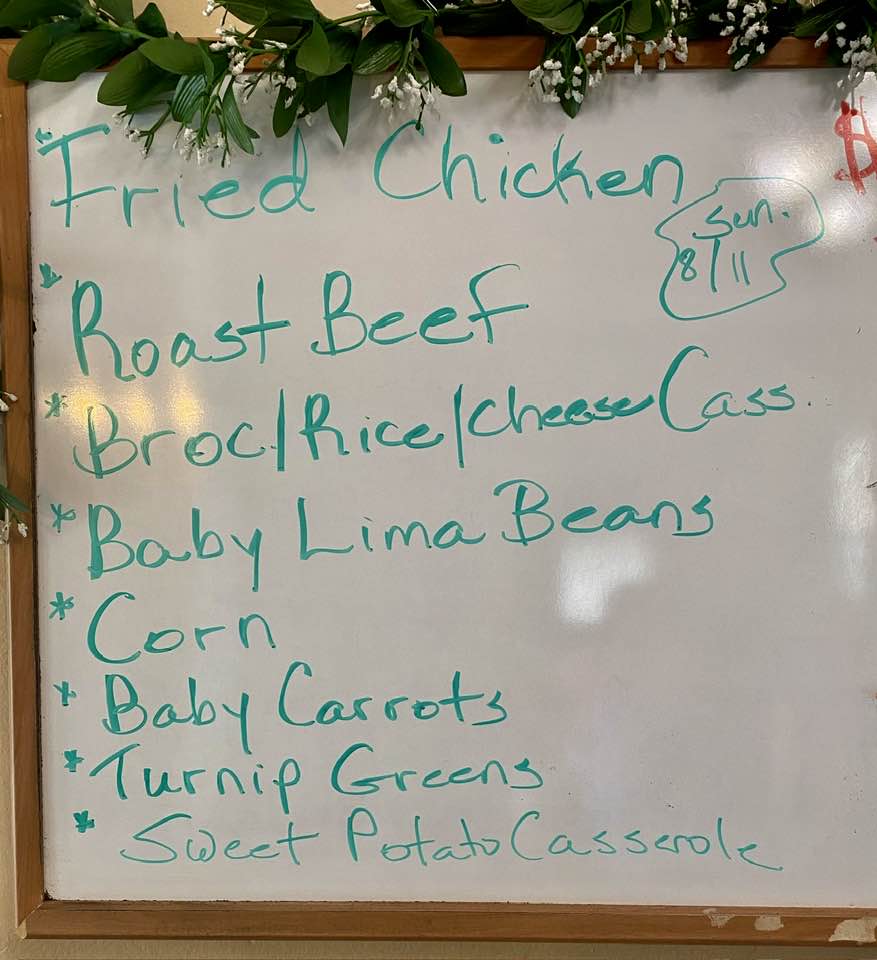 * Fried Chicken
Sun.
8/11
* Roast Beef
* Broc/Rice/Cheese Cass.
* Baby Lima Beans
* Corn
* Baby Carrots
* Turnip Greens
* Sweet Potato Casserole
$